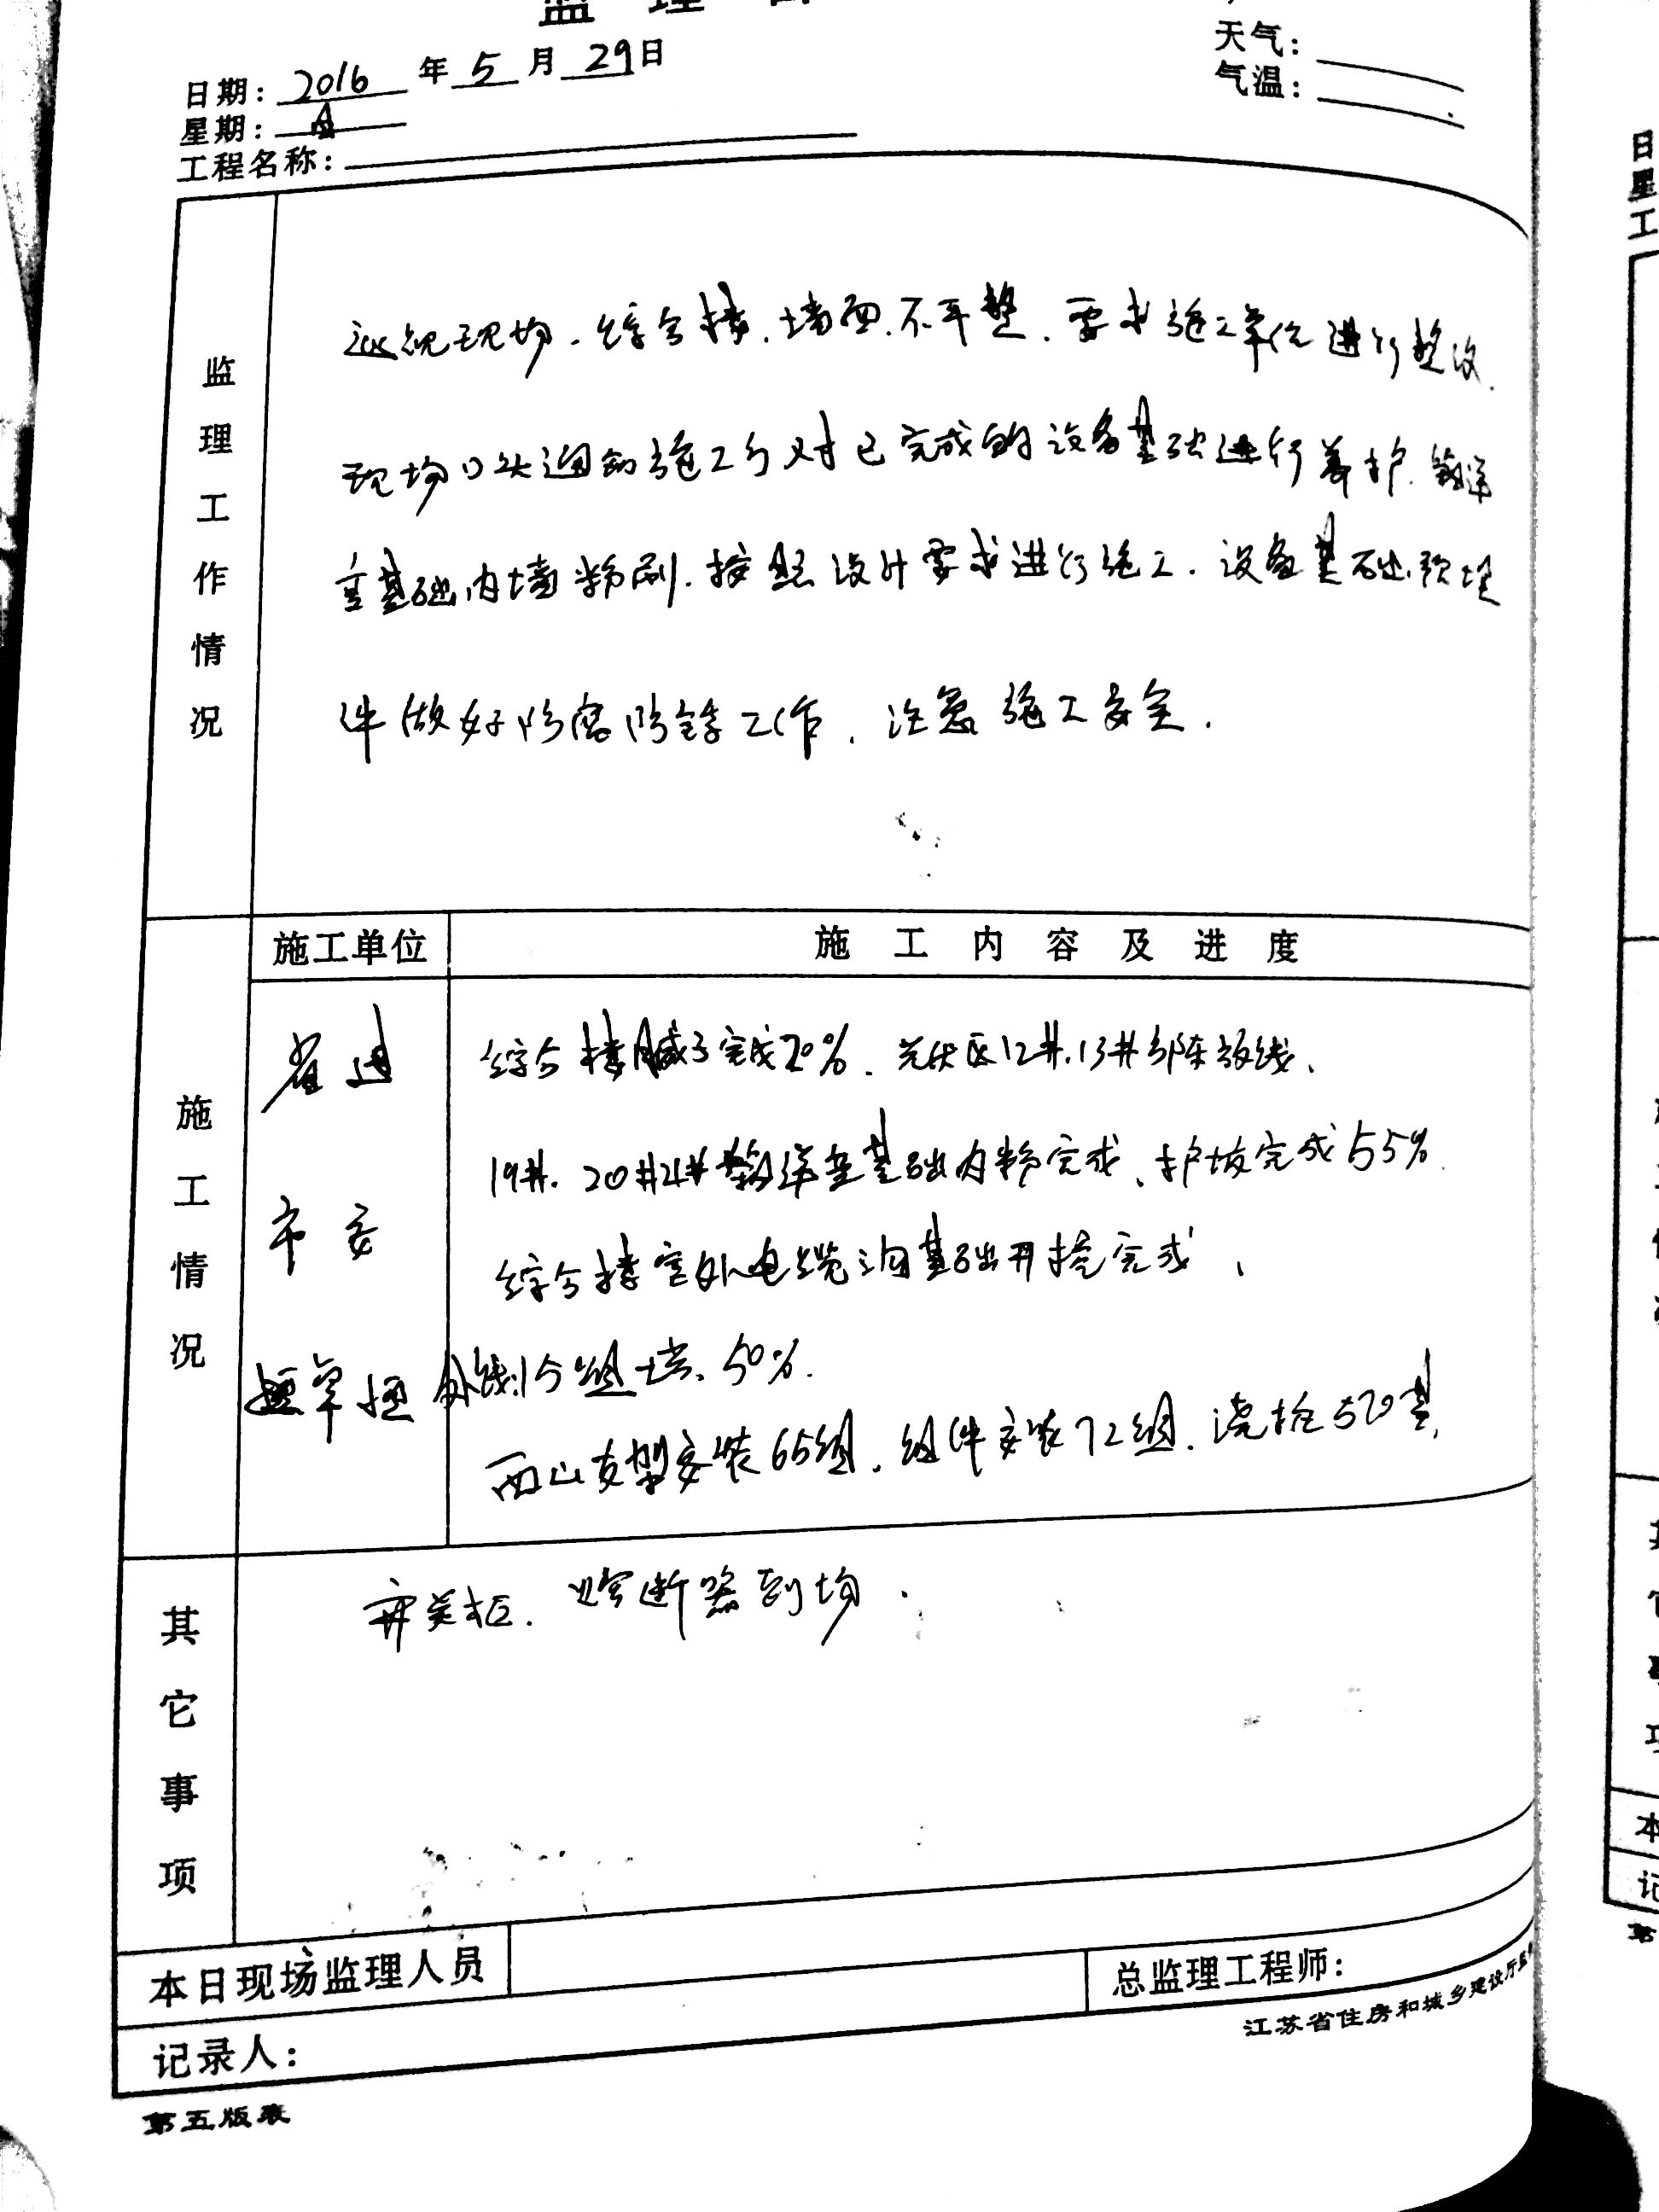 监理日
日期：2016年5月29日
天气：
星期：日
气温：
工程名称：
监理工作情况
巡视现场.综合楼.墙面.不平整.要求施工单位进行整改.
现场口头通知施工方对已完成的设备基础进行养护.箱逆
变基础内墙粉刷.按照设计要求进行施工.设备基础预埋
件做好防腐防锈工作.注意施工安全.
施工情况
施工单位
施工内容及进度
省建
综合楼腻子完成70%.光伏区12#.13#方阵放线.
19#.20#21#箱逆变基础内粉完成.护坡完成55%.
市安
综合楼室外电缆沟基础开挖完成.
外线15组塔.50%.
西山支架安装65组.组件安装72组.浇桩520基.
其它事项
开关柜.断器到场.
本日现场监理人员
总监理工程师：
记录人：
江苏省住房和城乡建设厅监
第五版表